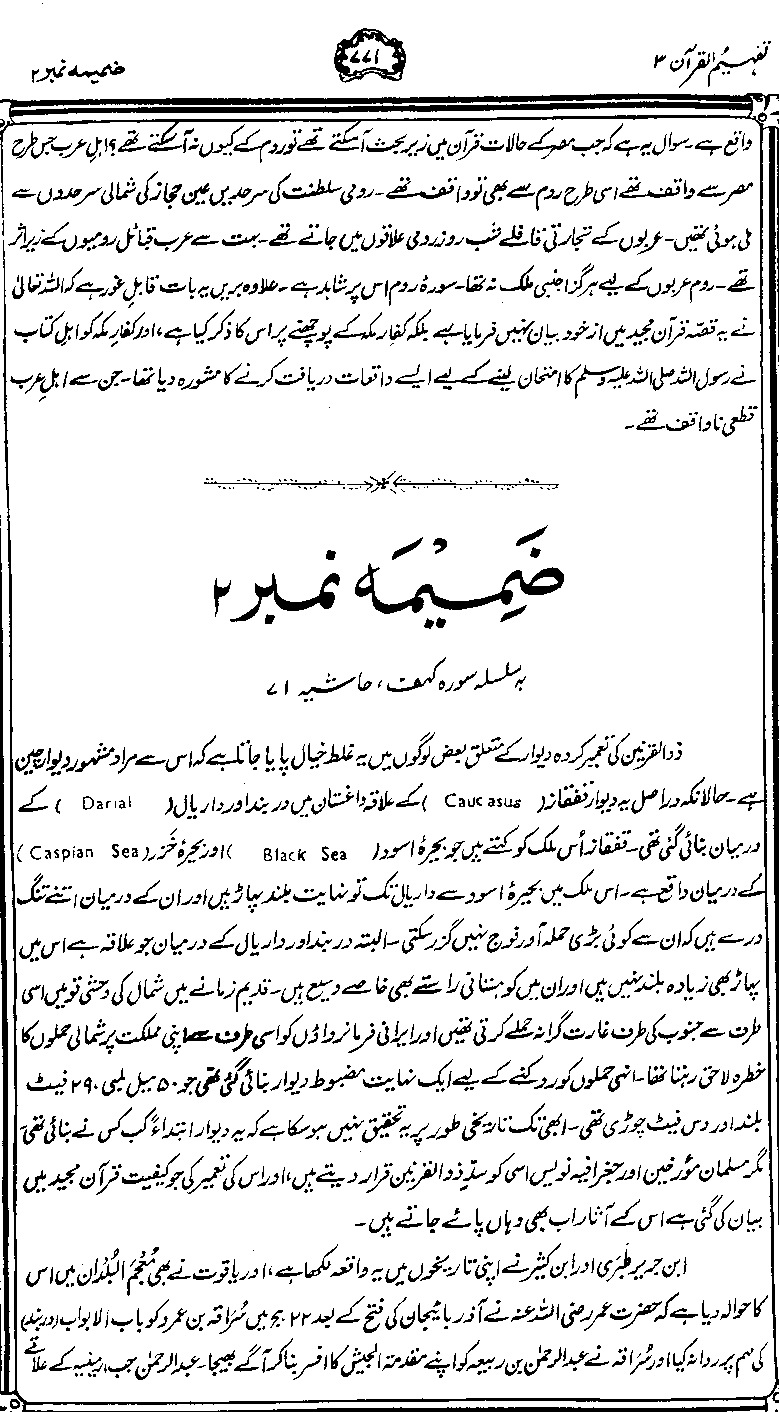 تفہیم القرآن ۳
۷۷۱
ضمیمہ نمبر ۲
واقع ہے۔ سوال یہ ہے کہ جب مصر کے حالات قرآن میں زیر بحث آسکتے تھے تو روم کے کیوں نہ آسکتے تھے؟ اہل عرب جس طرح
مصر سے واقف تھے اسی طرح روم سے بھی تو واقف تھے۔ رومی سلطنت کی سرحدیں عین حجاز کی شمالی سرحدوں سے
ملی ہوئی تھیں۔ عربوں کے تجارتی قافلے شب و روز رومی علاقوں میں جاتے تھے۔ بہت سے عرب قبائل رومیوں کے زیر اثر
تھے۔ روم عربوں کے لیے ہرگز اجنبی ملک نہ تھا۔ سورۂ روم اس پر شاہد ہے۔ علاوہ بریں یہ بات قابل غور ہے کہ اللہ تعالیٰ
نے یہ قصّہ قرآن مجید میں از خود بیان نہیں فرمایا ہے بلکہ کفار مکہ کے پوچھنے پر اس کا ذکر کیا ہے، اور کفار مکہ کو اہل کتاب
نے رسول اللہ صلی اللہ علیہ وسلم کا امتحان لینے کے لیے ایسے واقعات دریافت کرنے کا مشورہ دیا تھا۔ جن سے اہل عرب
قطعی ناواقف تھے۔
ضَمِیْمَہ نمبر ۲
بہ سلسلہ سورہ کہف، حاشیہ ۷۱
ذوالقرنین کی تعمیر کردہ دیوار کے متعلق بعض لوگوں میں یہ غلط خیال پایا جاتا ہے کہ اس سے مراد مشہور دیوار چین
ہے۔ حالانکہ دراصل یہ دیوار قفقاز (Caucasus) کے علاقہ داغستان میں دربند اور داریال (Darial) کے
درمیان بنائی گئی تھی۔ قفقاز اُس ملک کو کہتے ہیں جو بحیرۂ اسود (Black Sea) اور بحیرۂ خَزَر (Caspian Sea)
کے درمیان واقع ہے۔ اس ملک میں بحیرۂ اسود سے داریال تک تو نہایت بلند پہاڑ ہیں اور ان کے درمیان اتنے تنگ
درے ہیں کہ ان سے کوئی بڑی حملہ آور فوج نہیں گزر سکتی۔ البتہ دربند اور داریال کے درمیان جو علاقہ ہے اس میں
پہاڑ بھی زیادہ بلند نہیں ہیں اور ان میں کوہستانی راستے بھی خاصے وسیع ہیں۔ قدیم زمانے میں شمال کی وحشی قومیں اسی
طرف سے جنوب کی طرف غارت گرانہ حملے کرتی تھیں اور ایرانی فرمانرواؤں کو اسی طرف سے اپنی مملکت پر شمالی حملوں کا
خطرہ لاحق رہتا تھا۔ انہی حملوں کو روکنے کے لیے ایک نہایت مضبوط دیوار بنائی گئی تھی جو ۵۰ میل لمبی ۲۹۰ فیٹ
بلند اور دس فیٹ چوڑی تھی۔ ابھی تک تاریخی طور پر یہ تحقیق نہیں ہوسکا ہے کہ یہ دیوار ابتداءً کب کس نے بنائی تھی
مگر مسلمان مؤرخین اور جغرافیہ نویس اسی کو سدِّ ذوالقرنین قرار دیتے ہیں، اور اس کی تعمیر کی جو کیفیت قرآن مجید میں
بیان کی گئی ہے اس کے آثار اب بھی وہاں پائے جاتے ہیں۔
ابن جریر طَبَری اور ابن کثیر نے اپنی تاریخوں میں یہ واقعہ لکھا ہے، اور یاقوت نے بھی مُعْجَمُ الْبُلْدَان میں اس
کا حوالہ دیا ہے کہ حضرت عمر رضی اللہ عنہ نے آذر بائیجان کی فتح کے بعد ۲۲ ہجر میں سُراقہ بن عمرو کو باب الابواب (دربند)
کی مہم پر روانہ کیا اور سُراقہ نے عبدالرحمٰن بن ربیعہ کو اپنے مقدمۃ الجیش کا افسر بنا کر آگے بھیجا۔ عبدالرحمٰن جب ارمینیہ کے علاقے